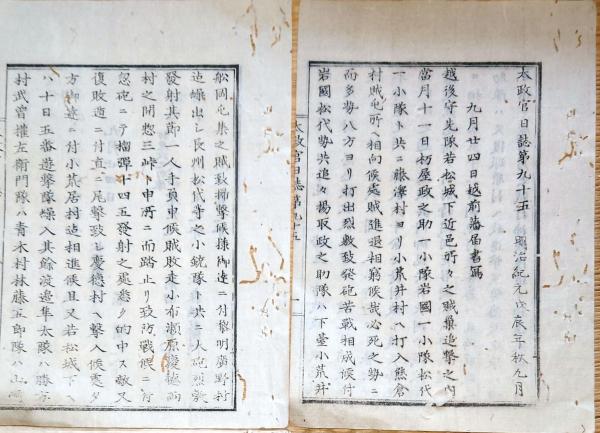 太政官日誌第九十五 明治紀元戊辰年秋九月
九月廿四日越前藩届書寫
越後守先隊若松城下近邑所々之賊巢追撃之内
當月十一日朽屋政之助一小隊岩國一小隊松代
一小隊ト共ニ藤澤村ヨリ小荒井村ヘ打入熊倉
村賊屯所ヘ相向候處賊進退相窮候哉必死之勢ニ
而多勢八方ヨリ打出烈敷致發砲苦戰相成候付
岩國松代勢共追々揚取政之助隊ハ下臺小荒井
太政官日誌第九十五
舩岡屯集之賊致掃撃候様御達ニ付黎明廣野村
迠繰出シ長州松代等之小銃隊ト共ニ大砲烈敷
發射其節一人手負申候賊敗走小布瀬原慶徳両
村之間惣三峠ト申所ニ而踏止リ致防戰候ニ付
忽砲ニテ榴彈十四五發射之處悉ク的中ス敵又
復敗逍ニ付直ニ尾撃致シ慶徳村ヘ撃入候處夕
方御達ニ付小荒居村迠相進候且又若松城下ヘ
ハ十日五番遊撃隊繰入其餘渡邉隼太隊ハ勝方
村武曾權左衛門隊ハ青木村林藤五郎隊ハ山